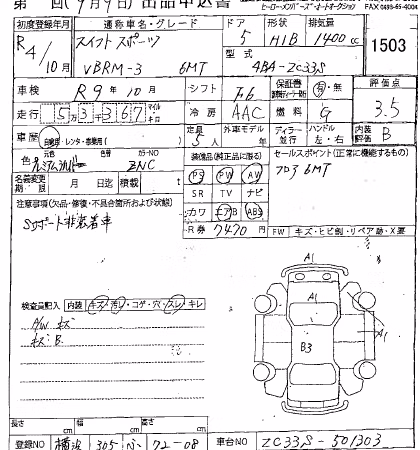 第 回(9月9日)出品申込書
ヒーローメンバーズ・オートオークション FAX 0493-65-4004
初度登録年月 通称車名・グレード ドア 形状 排気量
R4/10月 スイフト スポーツ 5 H/B 1400cc 1503
VBRM-3 6MT 型式 4BA-ZC33S
車検 R9年10月 シフト F6 保証書 有・無 評価点
走行 53367 マイル キロ 冷房 AAC 燃料 G 3.5
車歴 自家用・レンタ・事業用( ) 定員 5人 外車モデル ディーラー 並行 ハンドル 左・右 内装評価 B
色 元色 プレミアムシルバー カラーNO ZNC 装備品(純正品に限る) セールスポイント(正常に機能するもの)
名義変更期限 月 日迄 積載 t PS PW AW フロア6MT
注意事項(欠品・修復・不具合箇所および状態) SR TV ナビ
Sサポート非装着車 カワ エアB ABS
R券 7470 FW キズ・ヒビ割・リペア跡・X要
検査員記入 内装 キズ・汚レ・コゲ・穴・スレ・キレ
A/W キズ
キズ.B.
A1
A1
B3
A1
長さ cm 幅 cm 高さ cm
登録NO 横浜 305 ふ 72-08 車台NO ZC33S-501303